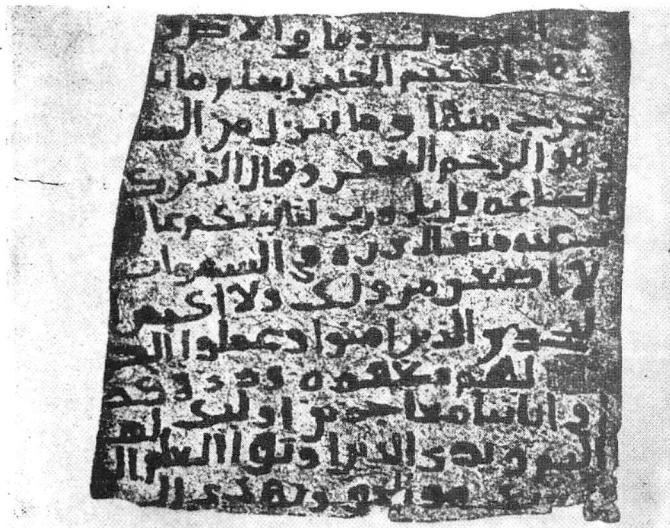 السموت وما في الارض
وهو الحكيم الخبير يعلم ما
يخرج منها وما ينزل من السـ
وهو الرحيم الغفور وقال الذين كـ
الساعه قل بلى وربي لتاتينكم عا
عنه مثقال ذره في السموات
لا اصغر من ذلك ولا اكبر ا
ليجزي الذين امنوا وعملوا الصـ
لهم مغفره ورزق كـ
و اياتنا معاجزين اولئك لهـ
اليم ويرى الذين اوتوا العلم ا
هو الحق ويهدي ا